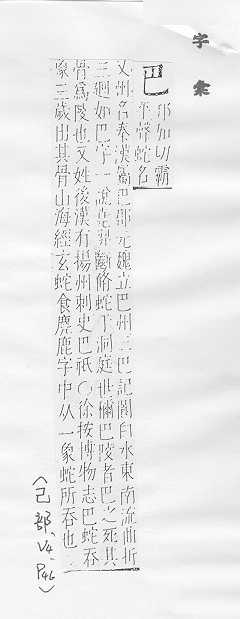 字彙
巴 邦加切霸
平聲蛇名
又州名秦漢屬巴郡元魏立巴州三巴記閬白水東南流曲折
三迴如巴字一說羿斷脩蛇于洞庭世稱巴陵者巴之死其
骨為陵也又姓後漢有楊州刺史巴祇○徐按博物志巴蛇吞
象三歲出其骨山海經玄蛇食麈鹿字中从一象蛇所吞也
(己部、V4、P46)